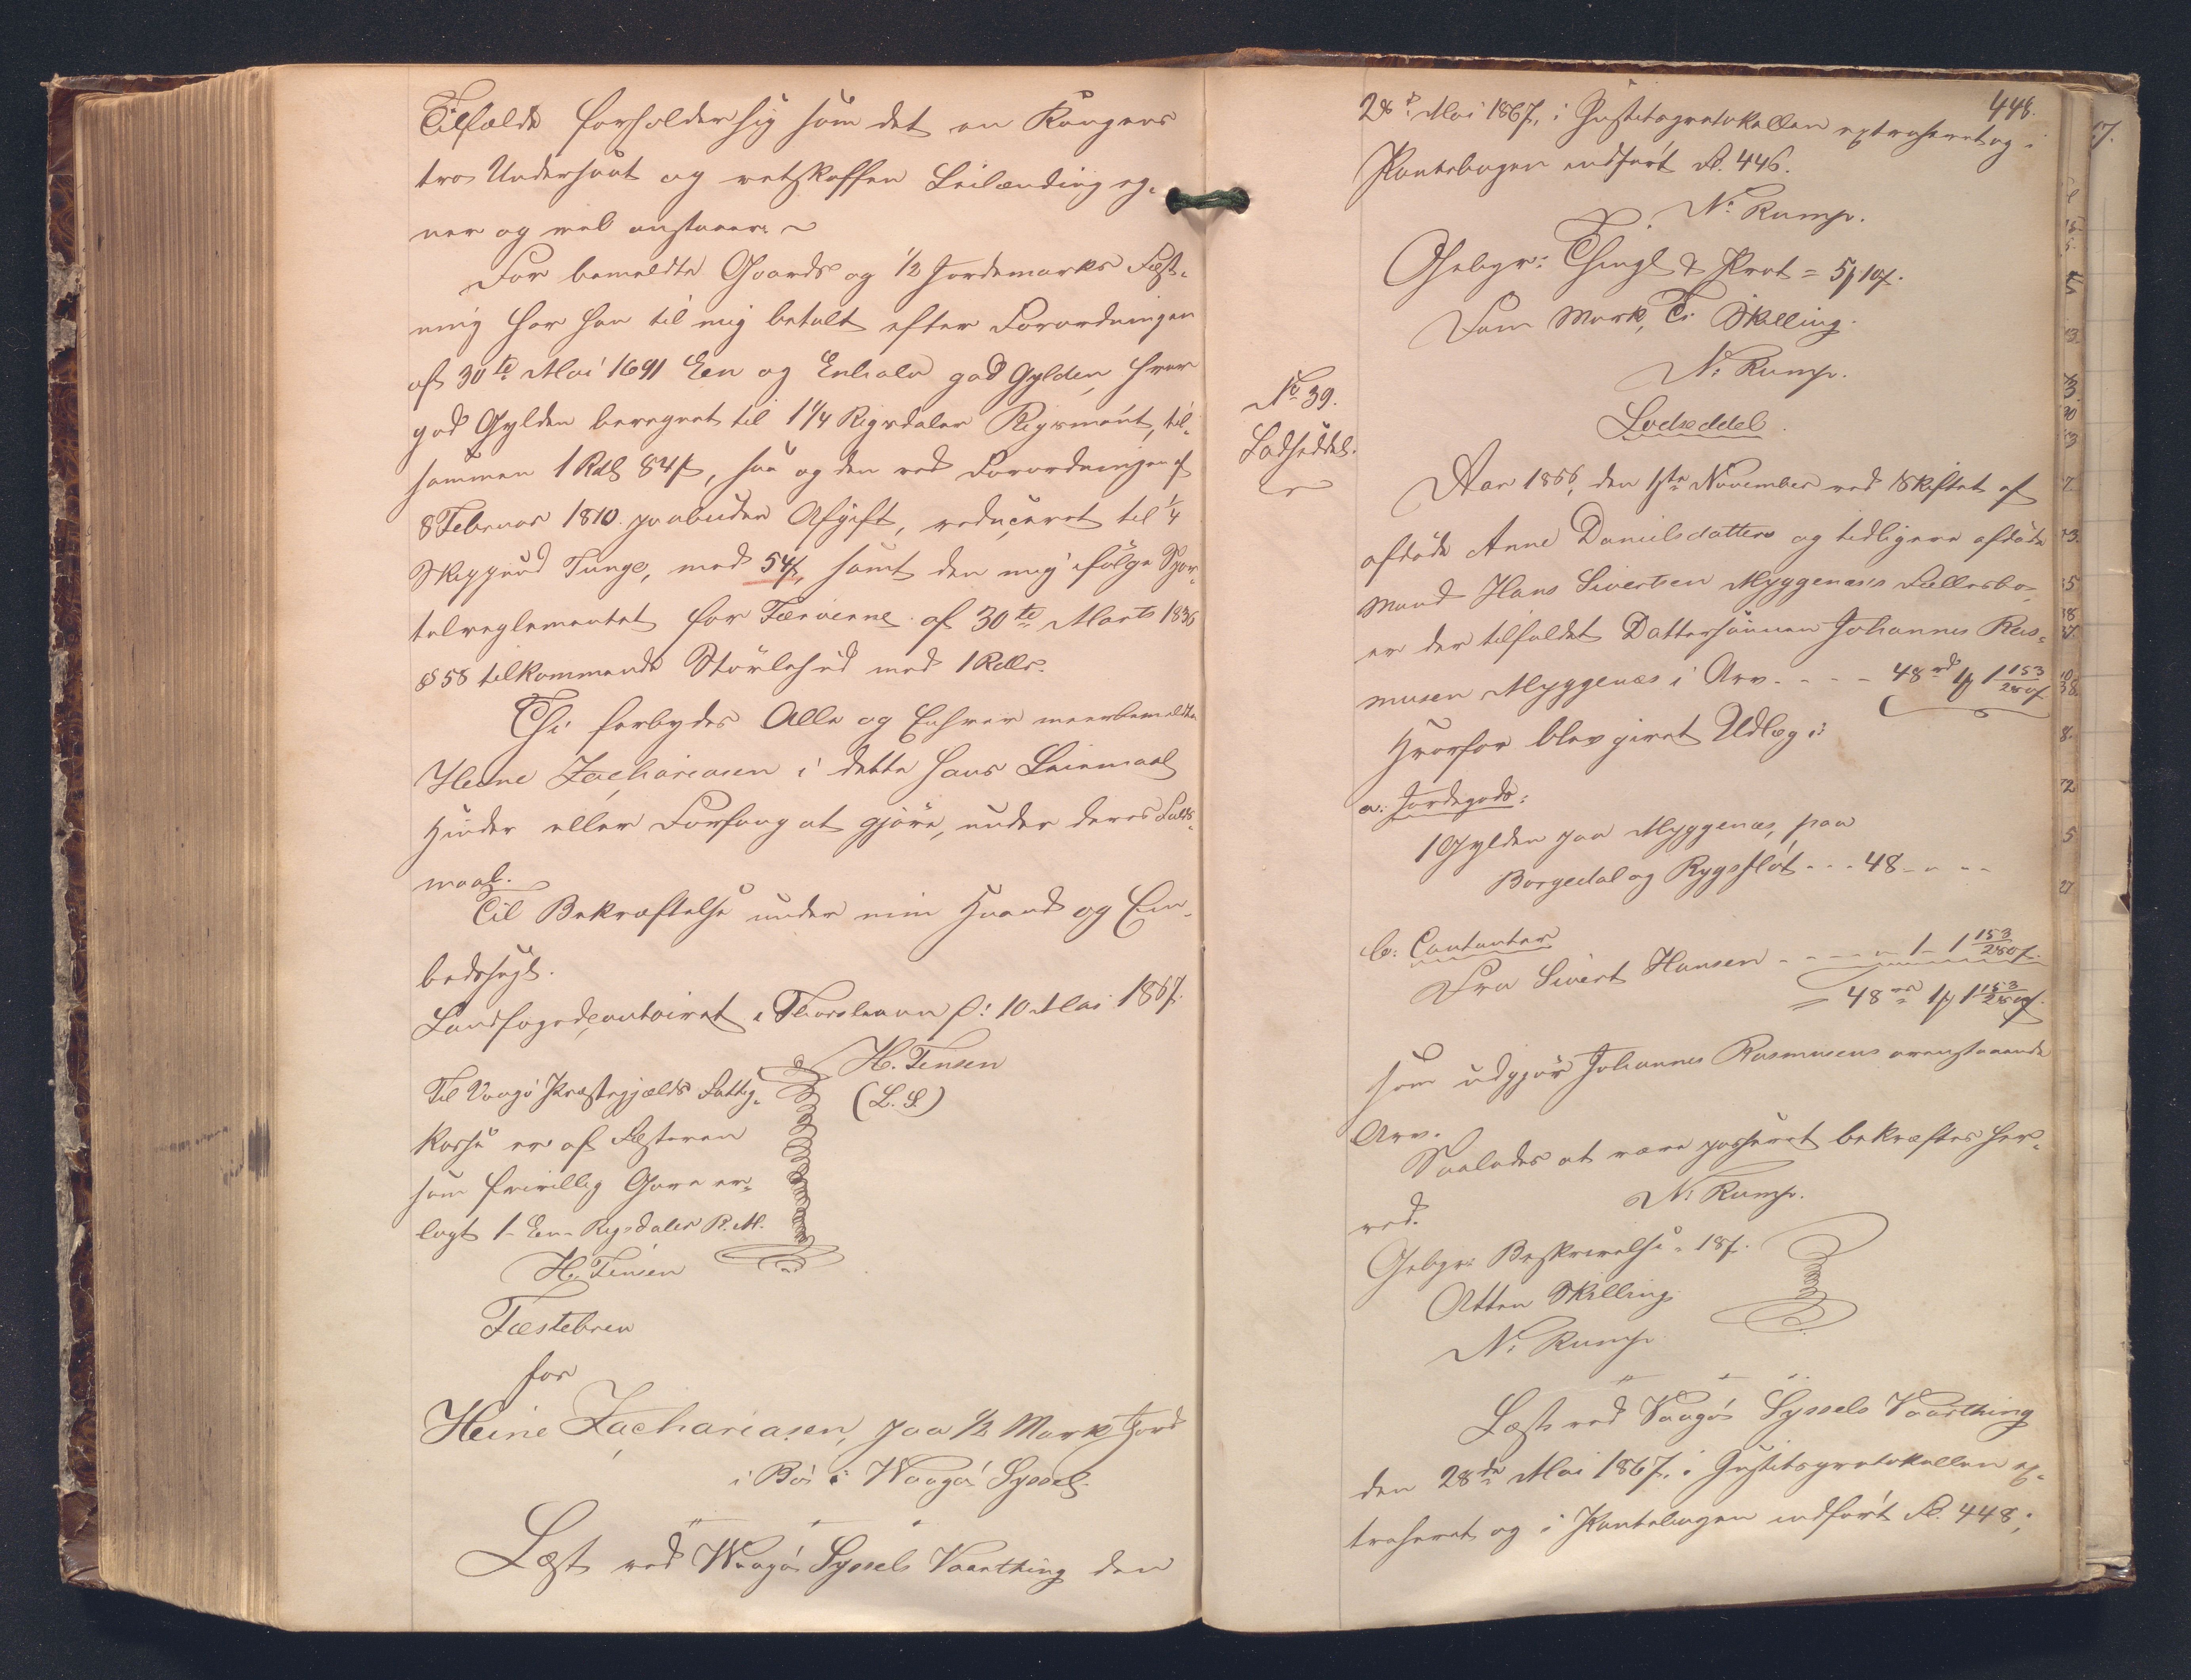 Tilfælde forholder sig som det en Kongens
tro Undersaat og retskaffen Leilænding eg-
ner og vel anstaaer.
For bemeldte Gaards og 1/2 Jordemarks Fæst-
ning har han til mig betalt efter Forordningen
af 30te Mai 1691 Een og Enhalv god Gylden, hver
god Gylden beregnet til 1 1/4 Rigsdaler Rigsmønt, til-
sammen 1 Rdl 84 ß, saa og den ved Forordningen af
8 Februar 1810 paabudne Afgift, reduceret til 1/4
Skippund Tunge, med 54 ß, samt den mig ifølge Spor-
telreglementet for Færøerne af 30te Marts 1836
§ 58 tilkommende Størlehud med 1 Rdlr.
Thi forbydes Alle og Enhver meerbemeldte
Heine Zachariasen i dette hans Leiemaal
Hinder eller Forfang at gjøre, under deres Falds-
maal.
Til Bekræftelse under min Haand og Em-
bedssegl.
Landfogedcontoiret i Thorshavn d: 10 Mai 1867.
H. Finsen
(L. S.)
Til Vaagø Præstegjælds Fattig-
kasse er af Fæsteren
som frivillig Gave er-
lagt 1 - Een - Rigsdaler R. M.
H. Finsen
Fæstebrev
for
Heine Zachariasen, paa 1/2 Mark Jord
i Bø i Waagø Syssel.
Læst ved Waagø Syssels Vaarthing den
448.
28d Mai 1867, i Justitsprotokollen extraheret og i
Pantebogen indført Fol. 446.
N. Rump.
Gebyr: Thingl & Prot = 5 ꝳ 10 ß.
Fem Mark, Ti Skilling.
N. Rump.
No 39.
Lodseddel.
Lodseddel.
Aar 1856, den 1ste November ved Skiftet af
afdøde Anne Danielsdatters og tidligere afdøde
Mand Hans Sivertsen Myggenæs's Fællesbo
er der tilfaldet Dattersønnen Johannes Ras-
musen Myggenæs i Arv - - - - 48 rd 1 ꝳ 1 153/280 ß
Hvorfor blev givet Udlæg i:
a: Jordegods:
1 Gylden paa Myggenæs, paa
Borgedal og Rygsflöt - - - 48 - " - -
b: Contanter
Fra Sivert Hansen - - - - " - 1 - 1 153/280 ß.
= 48 rd 1 ꝳ 1 153/280 ß.
som udgjør Johannes Rasmusens ovenstaaende
Arv.
Saaledes at være passeret bekræftes her-
ved.
N. Rump.
Gebyr: Beskrivelse = 18 ß.
Atten Skilling
N. Rump
Læst ved Vaagø Syssels Vaarthing
den 28de Mai 1867, i Justitsprotokollen ex-
traheret og i Pantebogen indført Fol. 448;